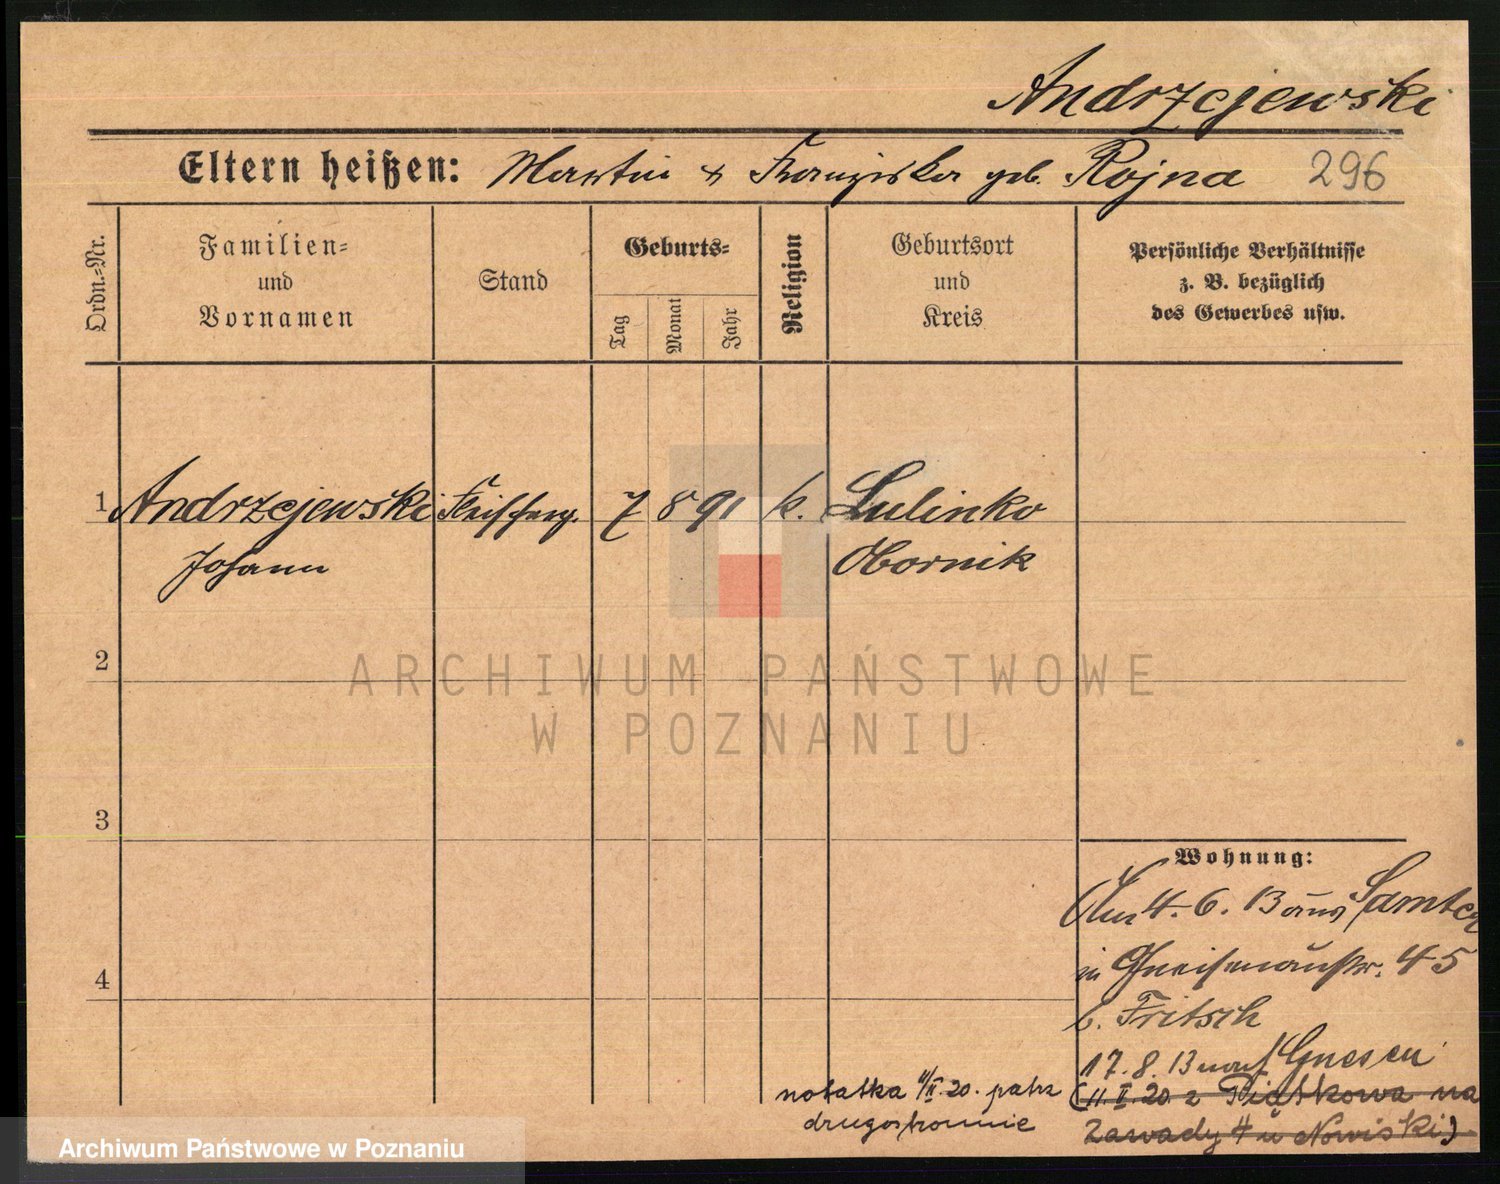 Andrzejewski
Eltern heißen: Martin & Franziska geb. Rojna 296
Ordn.=Nr.
Familien=
und
Vornamen
Stand
Geburts=
Tag
Monat
Jahr
Religion
Geburtsort
und
Kreis
Persönliche Verhältnisse
z. B. bezüglich
des Gewerbes usw.
1 Andrzejewski 7 8 91 k. Lulinko
Johann Obornik
2
ARCHIWUM PAŃSTWOWE
W POZNANIU
3
Wohnung:
4. 6. 13 aus Samter
4
in Gneisenaustr. 45
b. Fritsch
17. 8. 13 nach Gnesen
notatka 11/II. 20. patrz
drugostronnie
(11. II. 20. z Piątkowa na
Zawady 4 u Nowiski)
Archiwum Państwowe w Poznaniu